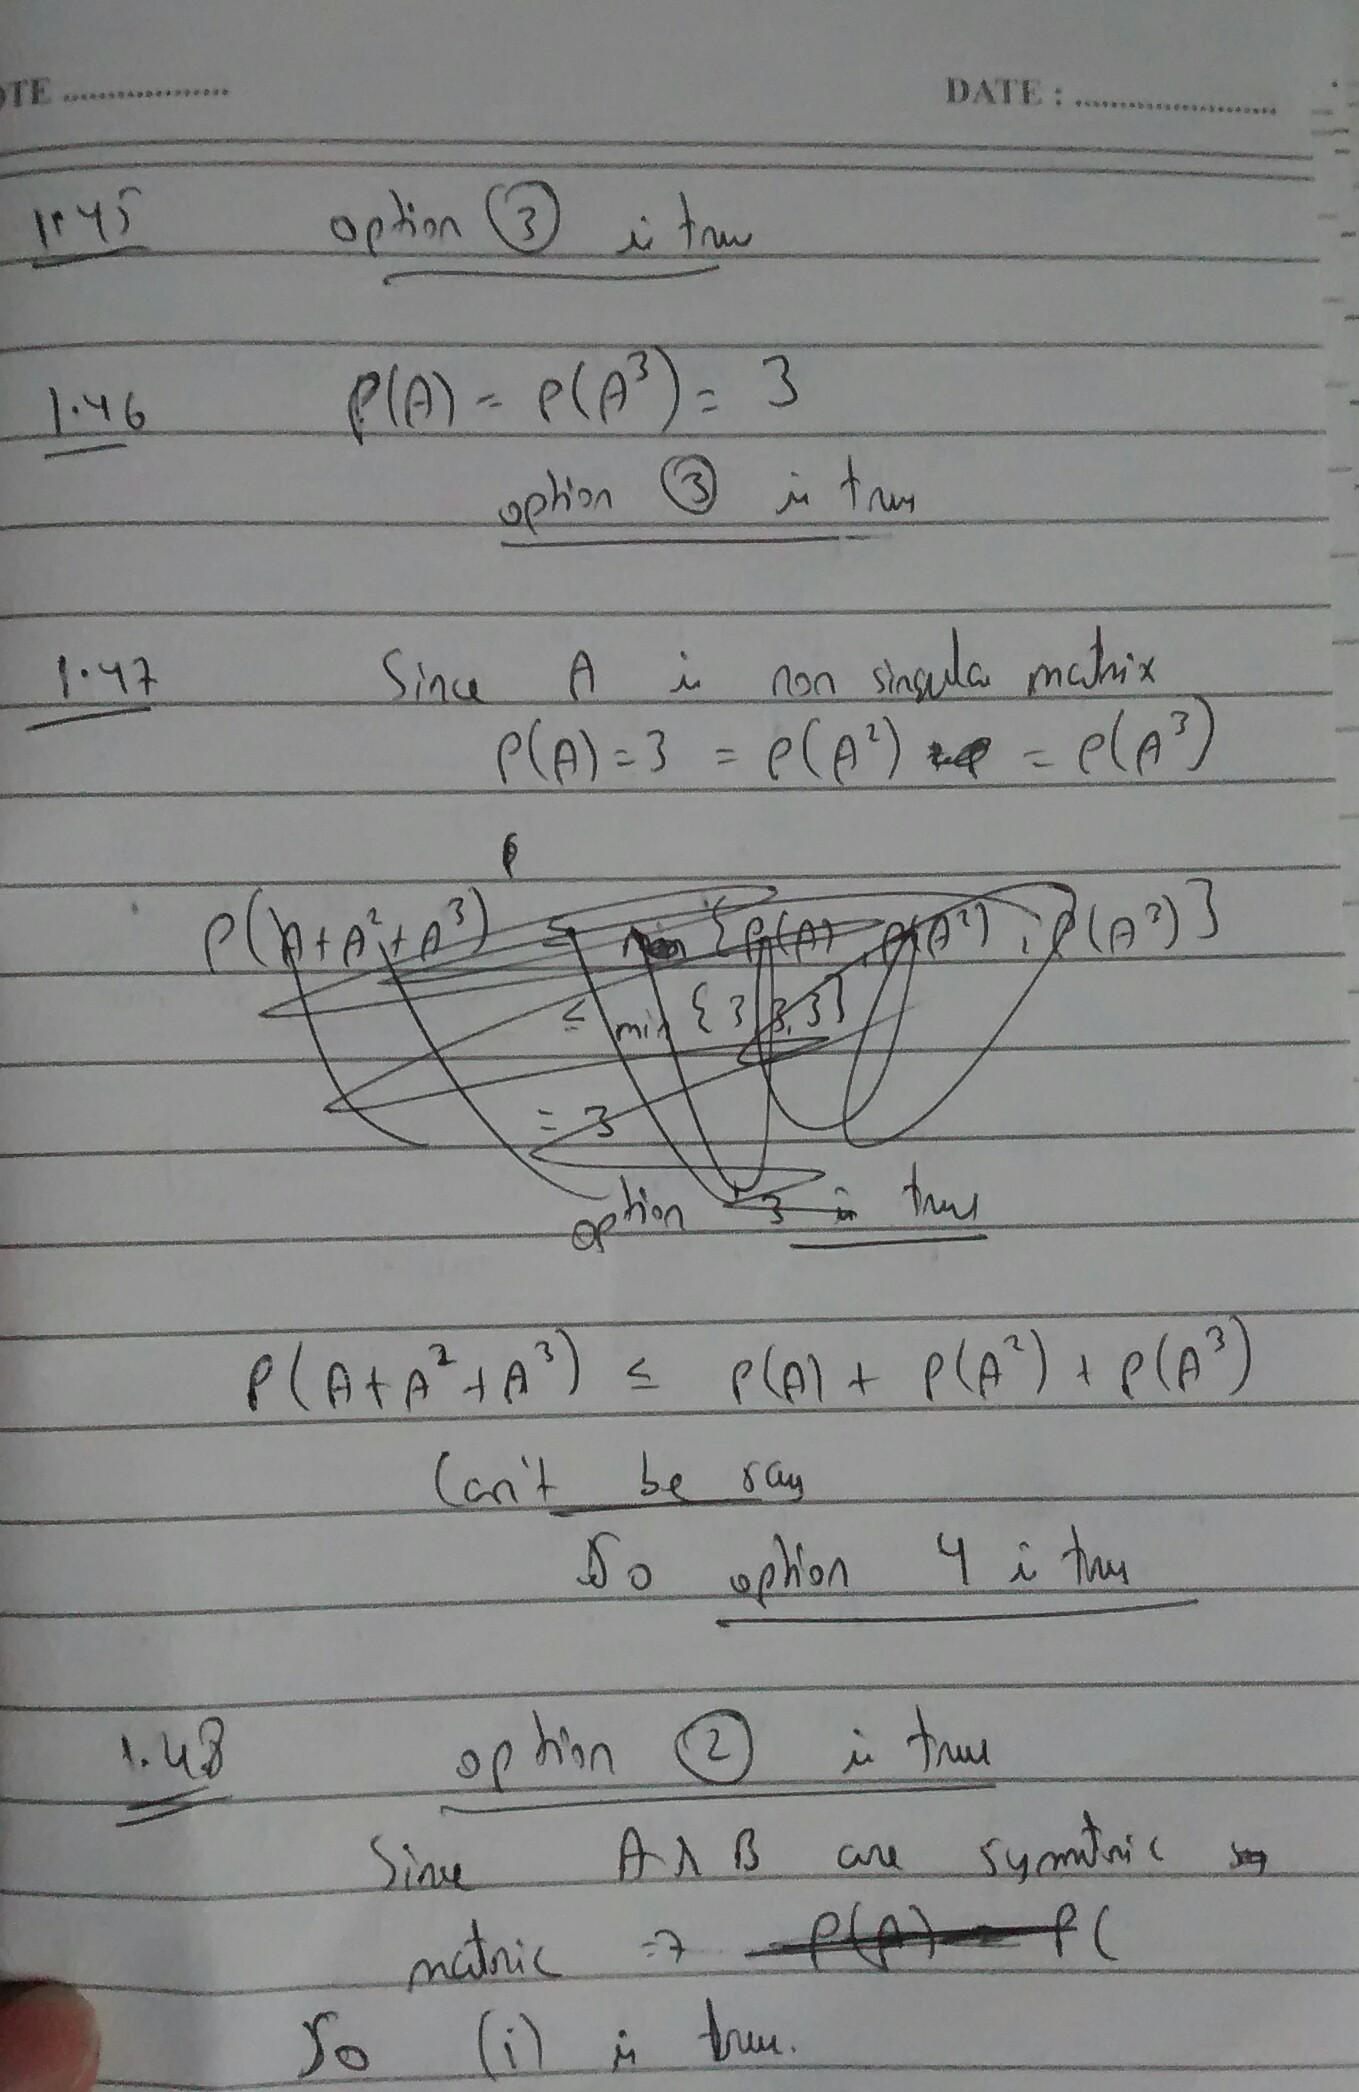 OTE ..................
DATE : ..............................
1.45 option ③ is true
1.46 ρ(A) = ρ(A³) = 3
option ③ is true
1.47 Since A is non singular matrix
ρ(A) = 3 = ρ(A²) = ρ(A³)
ρ(A+A²+A³) ≤ min {ρ(A), ρ(A²), ρ(A³)}
≤ min {3,3,3}
= 3
option 3 is true
ρ(A+A²+A³) ≤ ρ(A) + ρ(A²) + ρ(A³)
Can't be say
So option 4 is true
1.48 option ② is true
Since A & B are symmtric
matric => ρ(A) = ρ(
So (i) is true.